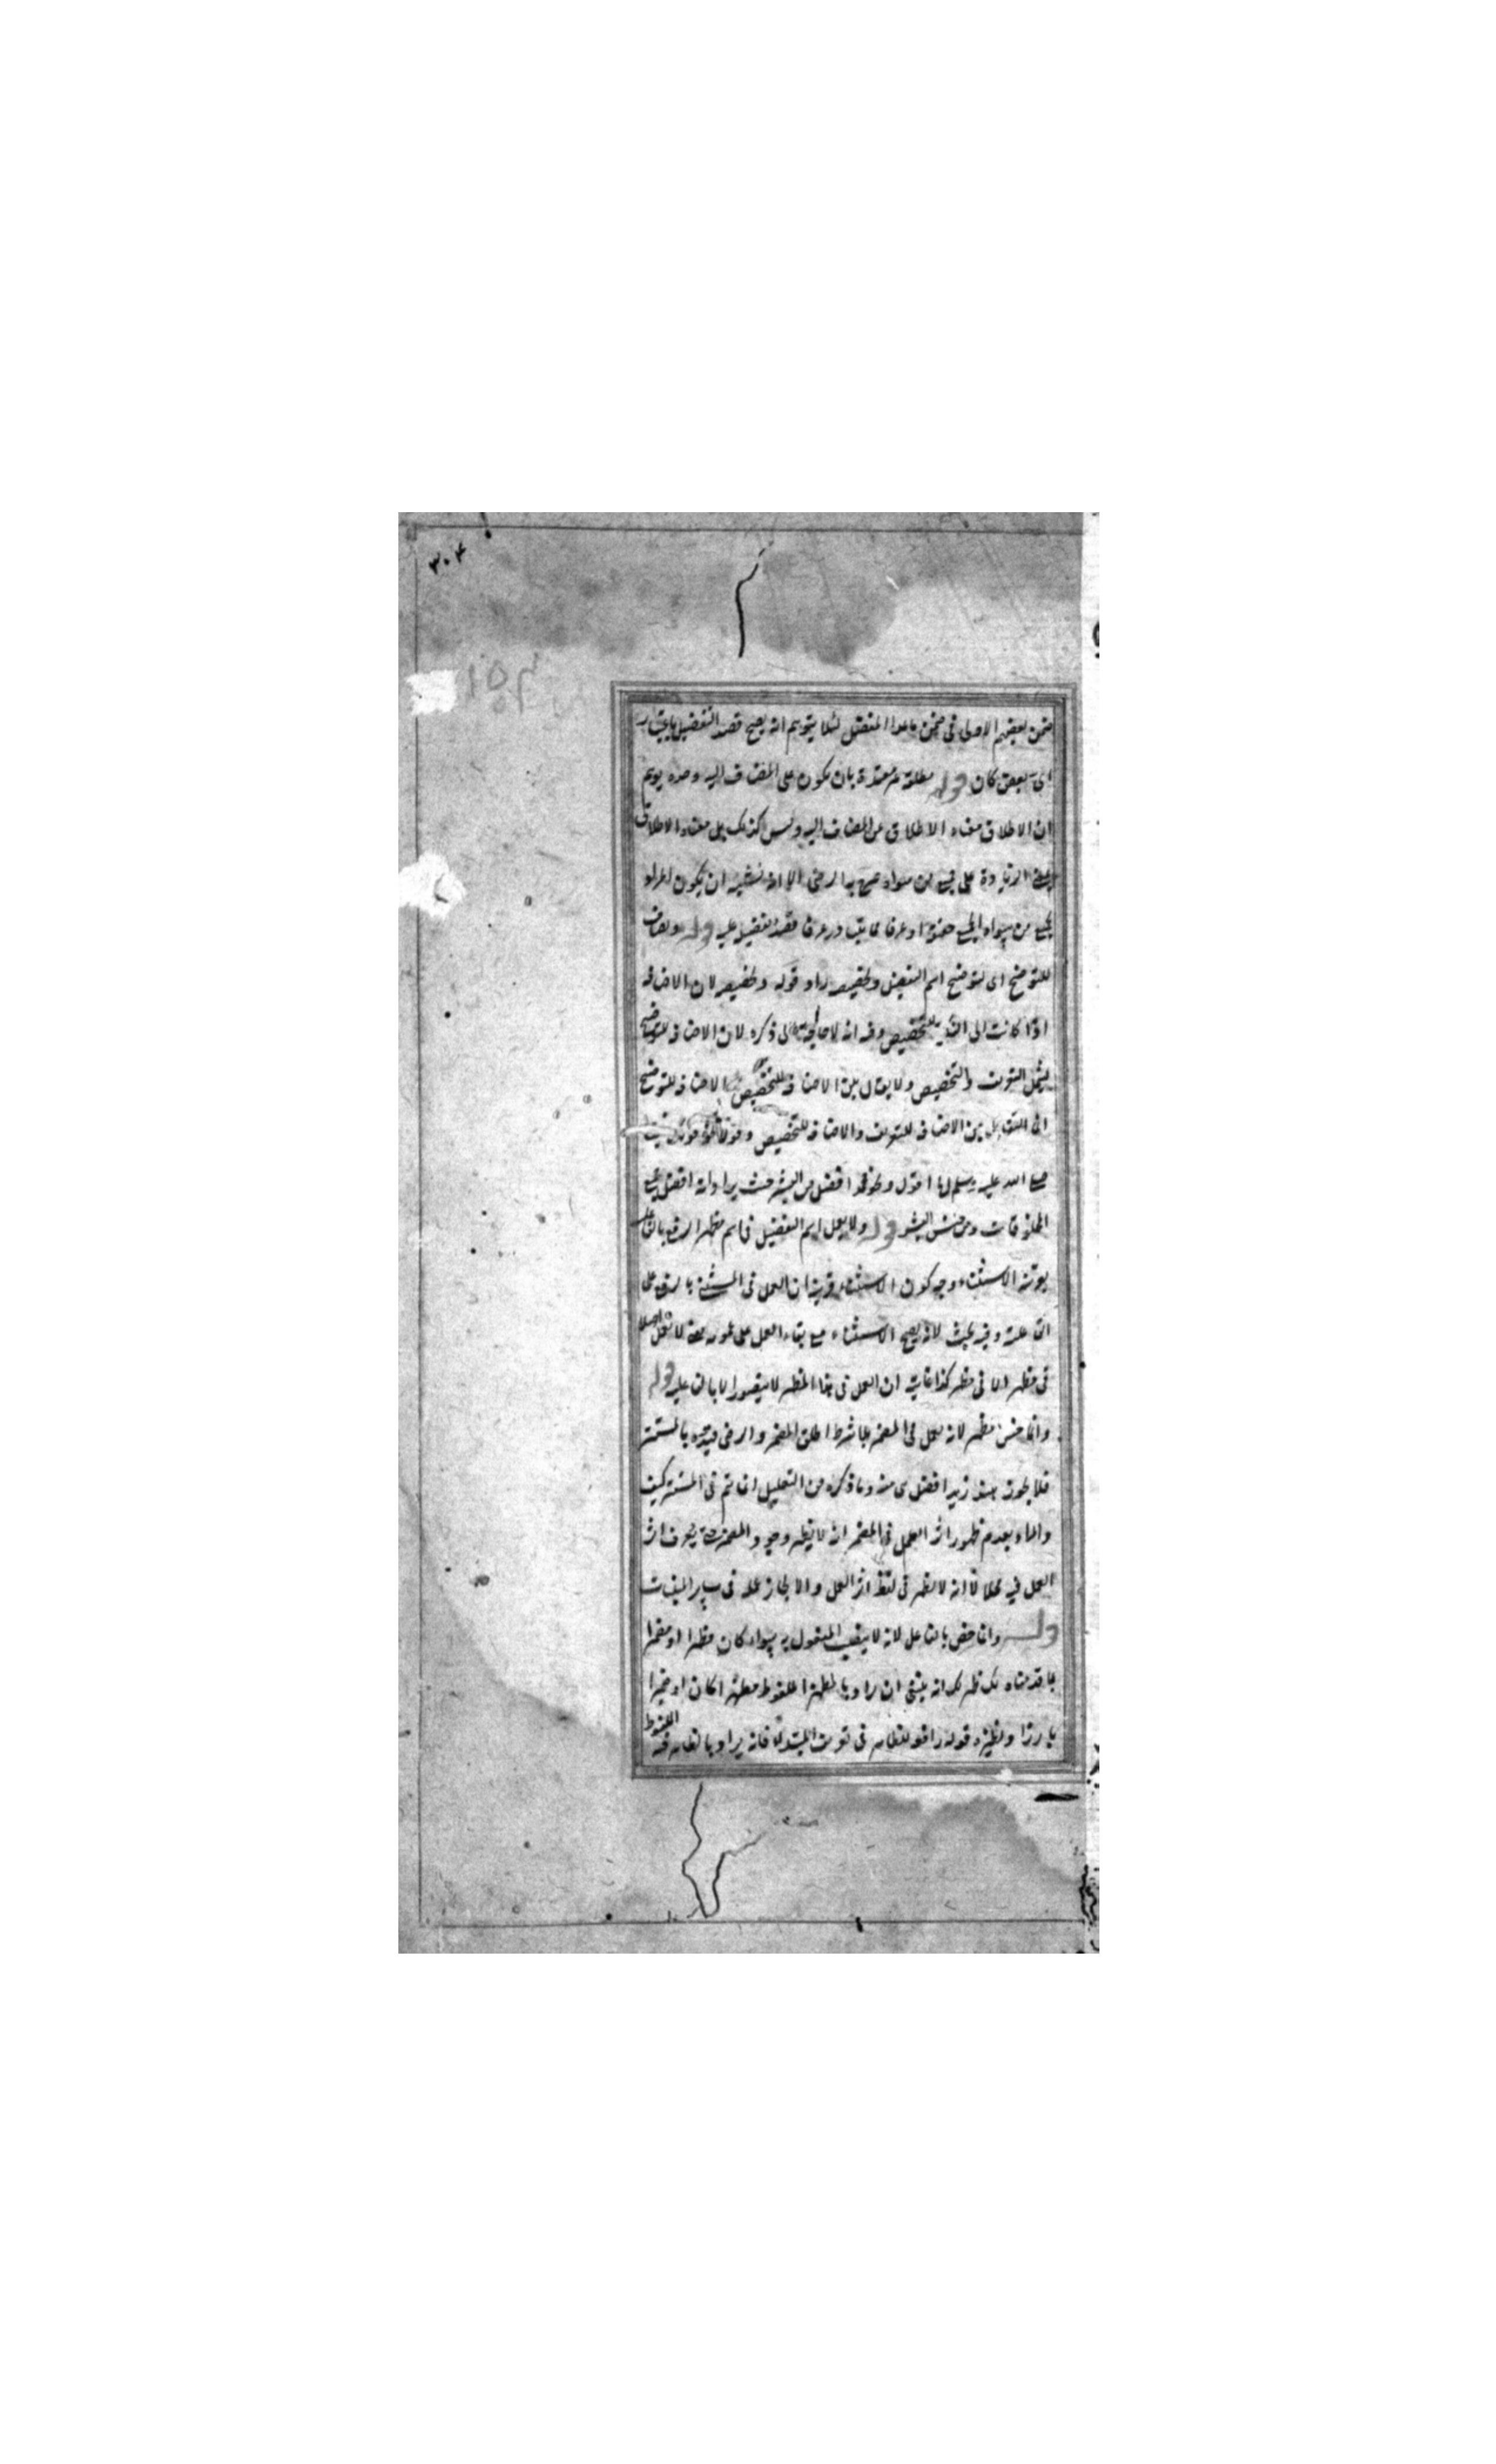 ٣٠٤
ضمن بعضهم الاولى فى ضمن ما عدا المفضل لئلا يتوهم انه يصح قصد التفضيل باعتبار
اى بعض كان قوله مطلقة غير مقيدة بان يكون على المضاف اليه وحده يوهم
ان الاطلاق معناه الاطلاق عن المضاف اليه وليس كذلك بل معناه الاطلاق
الزيادة على جميع من سواه صرح به الرضى الا انه يشترط ان يكون
من سواه اوعرفا قصد تفضيل عليه قوله ويضاف
للتوضيح اى لتوضيح اسم التفضيل وتخصيصه زاد قوله وتخصيصه لان الاضافة
اذا كانت الى النكرة للتخصيص وفيه انه لا حاجة الى ذكره لان الاضافة للتوضيح
يشمل التعريف والتخصيص ولا يقال بين الاضافة للتخصيص الاضافة للتوضيح
انما التقابل بين الاضافة للتعريف والاضافة للتخصيص
صلى الله عليه وسلم اقول ونحو محمد افضل من البشر حيث يراد انه افضل جميع
المخلوقات ومن جنس البشر قوله ولا يعمل اسم التفضيل فى اسم مظهر الرفع بالفاعلية
بقرينة الاستثناء وجه كون الاستثناء قرينة ان العمل فى المستثنى بالرفع على
الفاعلية وفيه بحث لانه يصح الاستثناء مع بقاء العمل على عمومه لا يعمل اصلا
فى مظهر الا فى مظهر كذا غايته ان العمل فى هذا المظهر لا يتصور الا بالفاعلية قوله
وانما خص مظهر لانه يعمل فى المضمر بلا شرط اطلق المضمر والرضى قيده بالمستتر
فلا يجوز هند زيد افضل هى منه وما ذكره من التعليل ان تم فى المستتر كيف
والمراد بعدم ظهور اثر العمل فى المضمر ان لا يظهر وجود المضمر حتى يعرف اثر
العمل فيه محلا لا انه لا يظهر فى لفظ اثر العمل والا لجاز عمله فى سائر المبنيات
قوله وانما خص بالفاعل لانه لا ينصب المفعول به سواء كان مظهرا او مضمرا
بما قدمناه لك ظهر لك انه ينبغى ان يراد بالمظهر الملفوظ مظهرا كان او ضميرا
بارزا ونظيره قوله رافعة لظاهر فى تعريف المبتدأ فانه يراد بالظاهر فيه الملفوظ